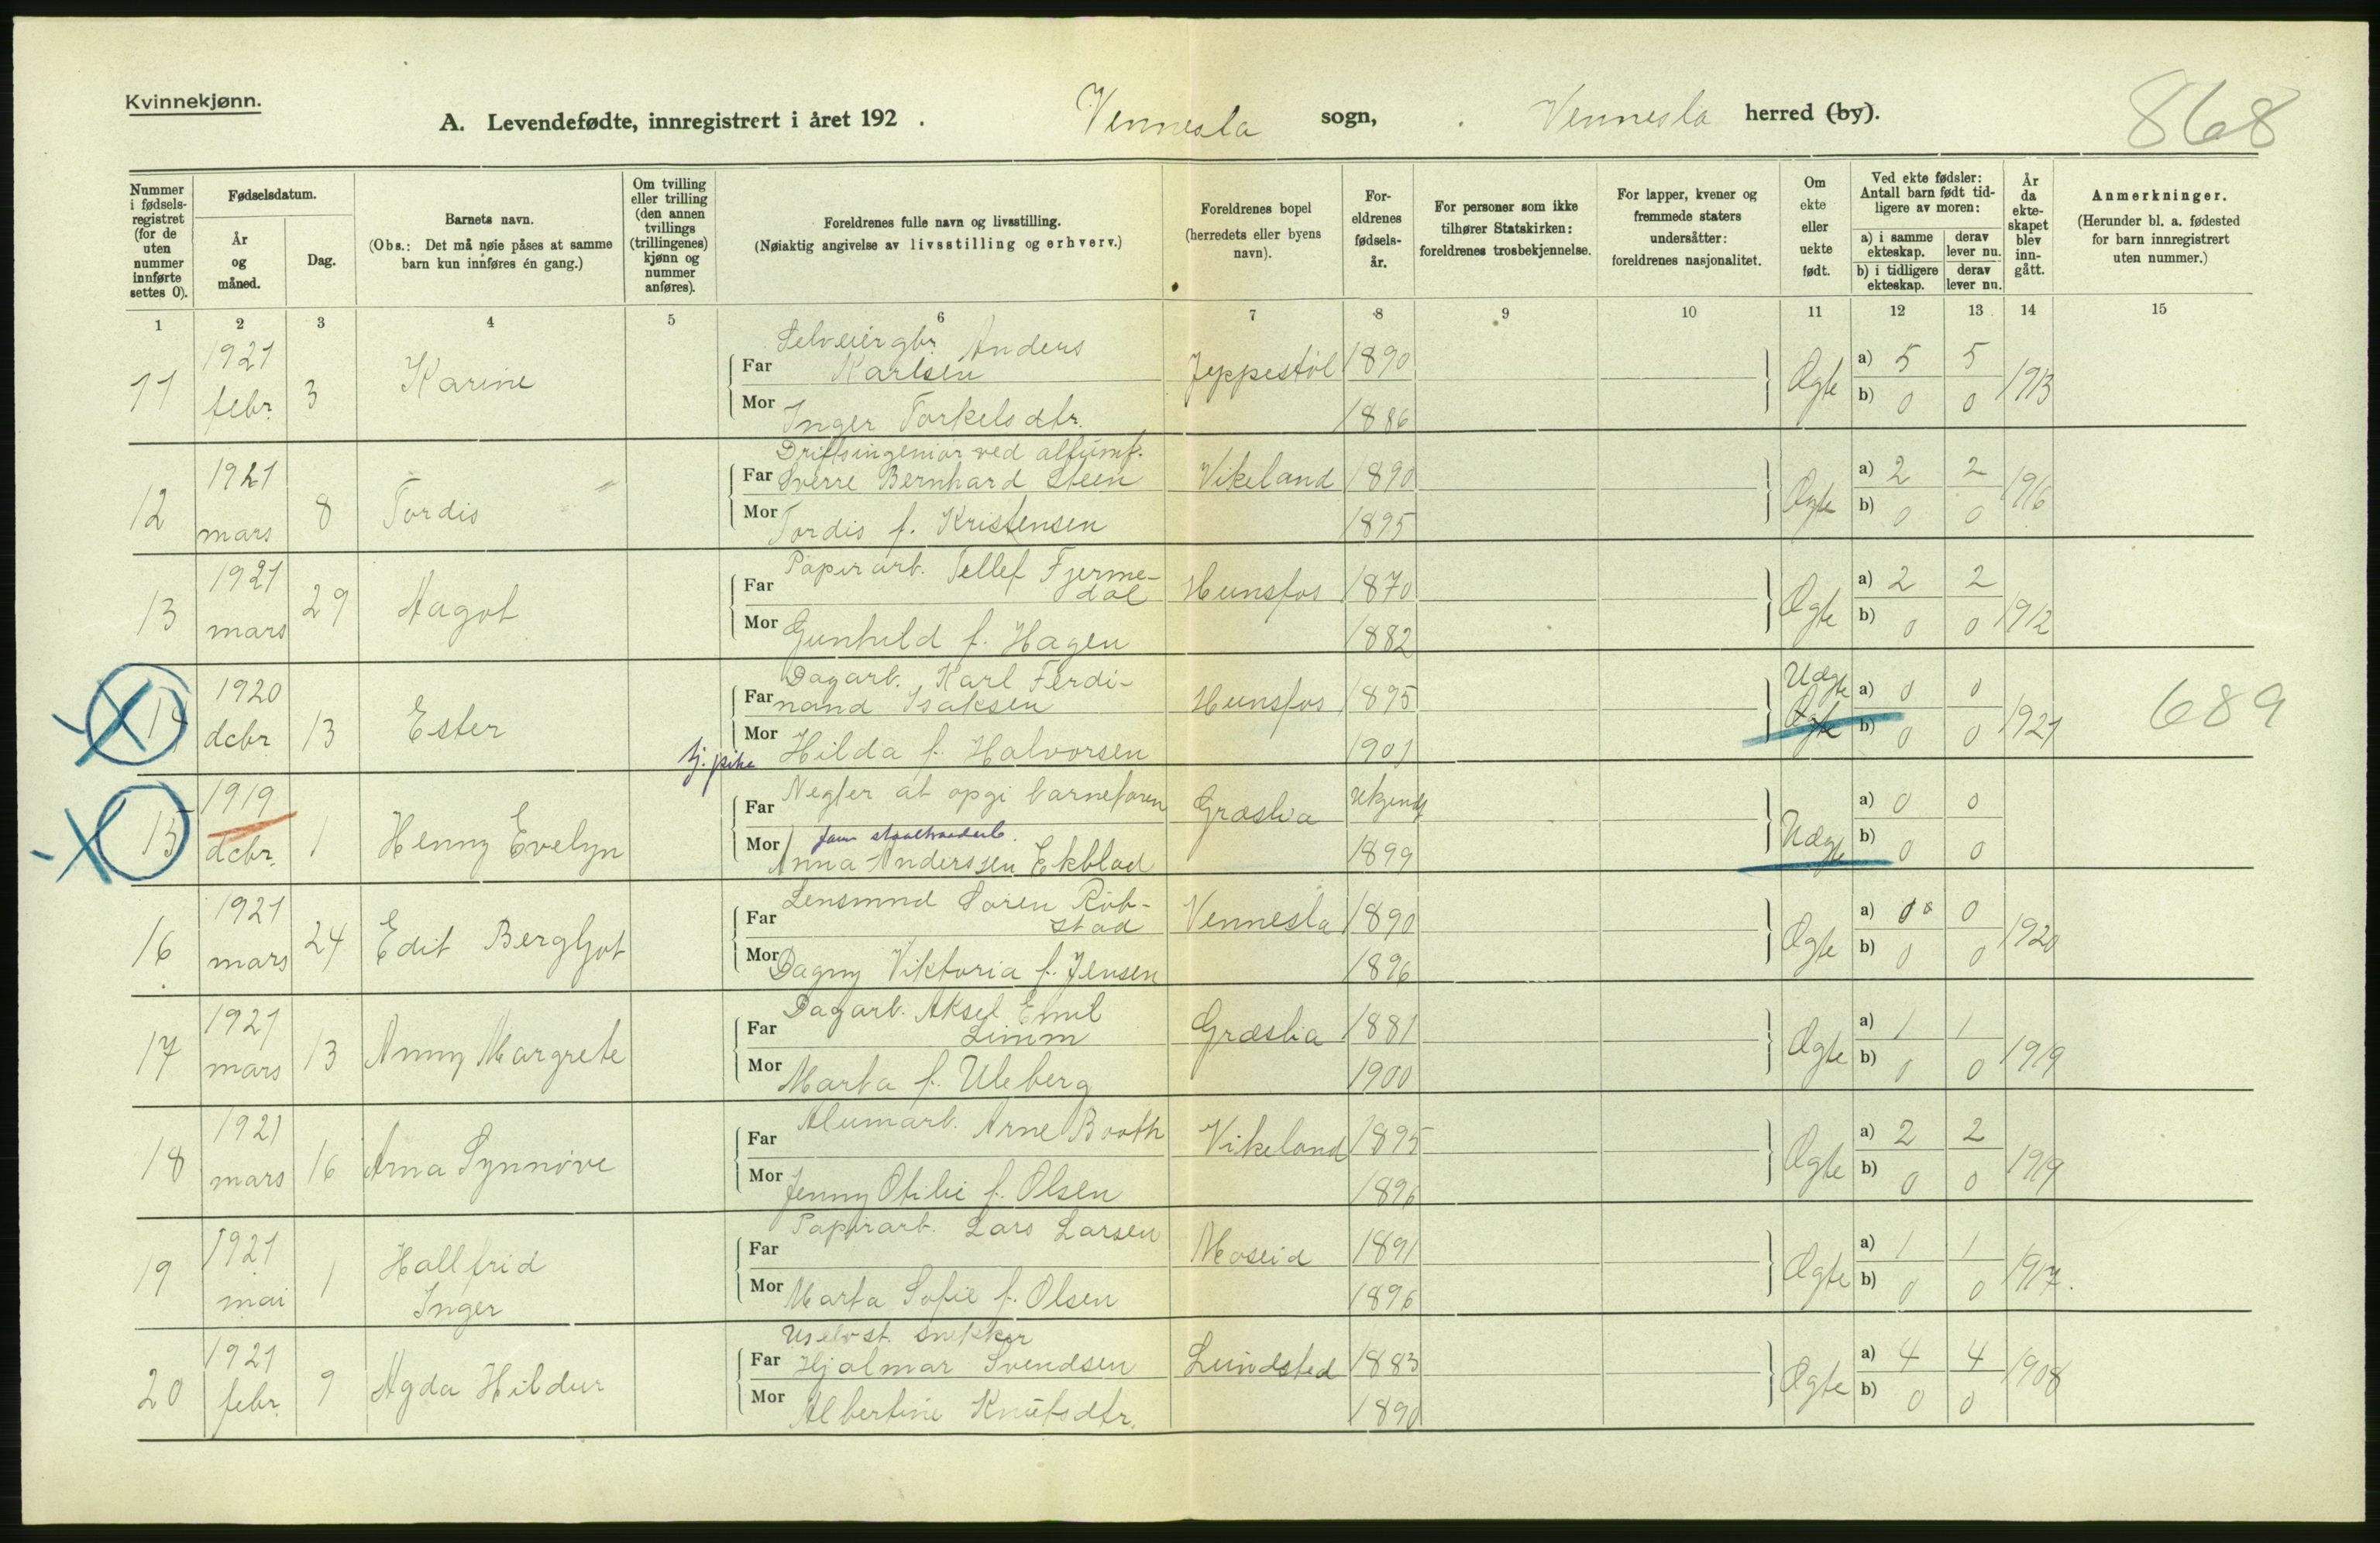 Kvinnekjønn.
A. Levendefødte, innregistrert i året 192 . Vennesla sogn, Vennesla herred (by).
868
Nummer i fødsels-registret (for de uten nummer innførte settes 0).
Fødselsdatum.
År og måned.
Dag.
Barnets navn.
(Obs.: Det må nøie påses at samme barn kun innføres én gang.)
Om tvilling eller trilling (den annen tvillings (trillingenes) kjønn og nummer anføres).
Foreldrenes fulle navn og livsstilling.
(Nøiaktig angivelse av livsstilling og erhverv.)
Foreldrenes bopel (herredets eller byens navn).
For-eldrenes fødsels-år.
For personer som ikke tilhører Statskirken: foreldrenes trosbekjennelse.
For lapper, kvener og fremmede staters undersåtter: foreldrenes nasjonalitet.
Om ekte eller uekte født.
Ved ekte fødsler: Antall barn født tid-ligere av moren:
a) i samme ekteskap.
derav lever nu.
b) i tidligere ekteskap.
derav lever nu.
År da ekte-skapet blev inn-gått.
Anmerkninger.
(Herunder bl. a. fødested for barn innregistrert uten nummer.)
1 2 3 4 5 6 7 8 9 10 11 12 13 14 15
11 1921 febr. 3 Karine
Selveiergbr. Anders
Far Karlsen Jeppestøl 1890
Mor Inger Torkelsdtr. 1886
Ægte a) 5 5 b) 0 0 1913
12 1921 mars 8 Tordis
Driftsingeniør ved
Far Sverre Bernhard Steen Vikeland 1890
Mor Tordis f. Kristensen 1895
Ægte a) 2 2 b) 0 0 1916
13 1921 mars 29 Aagot
Papirarb. Tellef Fjerme-
Far dal Hunsfos 1870
Mor Gunhild f. Hagen 1882
Ægte a) 2 2 b) 0 0 1912
14 1920 dcbr 13 Ester
Dagarb. Karl Ferdi-
Far nand Isaksen Hunsfos 1895
Mor Hilda f. Halvorsen 1901
tj. pike
Uægte Ægte a) 0 0 b) 0 0 1921 689
15 1919 dcbr. 1 Henny Evelyn
Far Negter at opgi barnefaren Græslia Ukjendt
Mor Anna Anderssen Ekblad 1899
Uægte a) 0 0 b) 0 0
16 1921 mars 24 Edit Bergljot
Lensmnd Søren Rob-
Far stad Vennesla 1890
Mor Dagny Viktoria f. Jensen 1896
Ægte a) 0 0 b) 0 0 1920
17 1921 mars 13 Anny Margrete
Dagarb. Aksel Emil
Far Linim Græslia 1881
Mor Marta f. Uleberg 1900
Ægte a) 1 1 b) 0 0 1919
18 1921 mars 16 Arna Synnøve
Far Alumarb. Arne Booth Vikeland 1895
Mor Jenny Otilie f. Olsen 1896
Ægte a) 2 2 b) 0 0 1919
19 1921 mai 1 Hallfrid
Inger
Far Papirarb. Lars Larsen Moseid 1891
Mor Marta Sofie f. Olsen 1896
Ægte a) 1 1 b) 0 0 1917.
20 1921 febr. 9 Agda Hildur
Uselvst. snekker
Far Hjalmar Svendsen Lundsted 1883
Mor Albertine Knutsdtr. 1890
Ægte a) 4 4 b) 0 0 1908